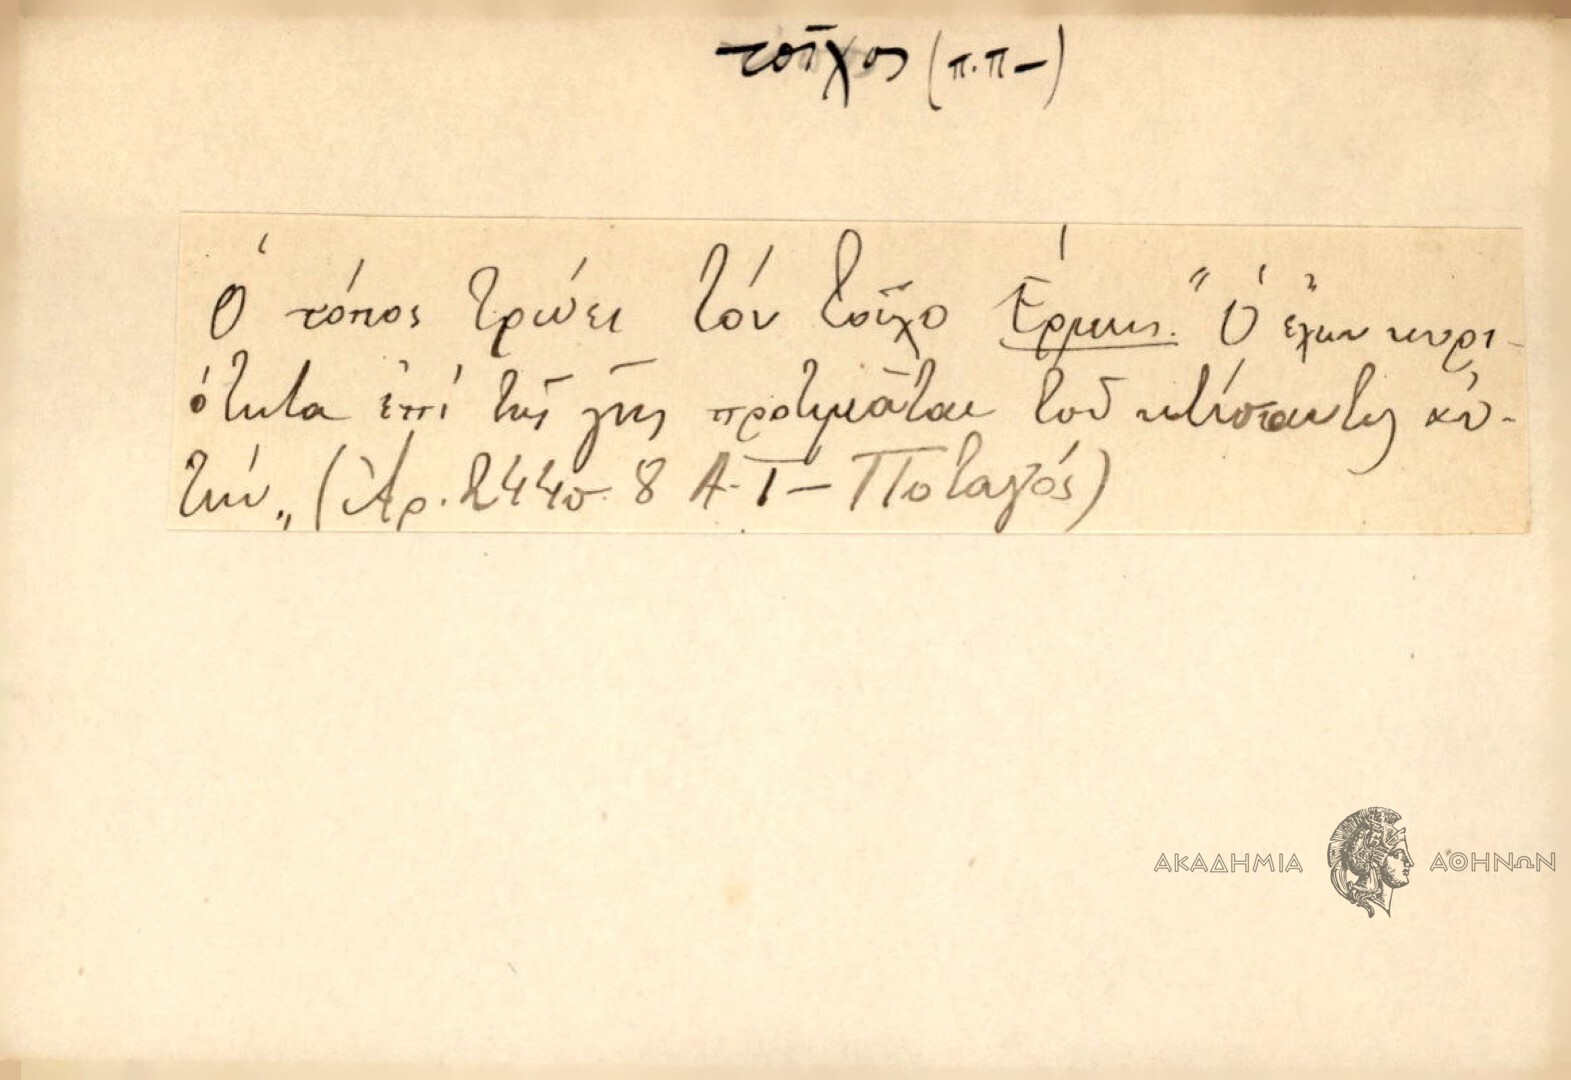 τοῖχος (π.π-)
Ὁ τόπος τρώει τόν τοῖχο Ἑρμην. "Ὁ ἔχων κυρι-
ότητα ἐπί τῆς γῆς προτιμᾶται τοῦ κτίσαντος αὐ-
τήν„ (Ἀρ. 2440. 8 Α-Τ- Ποταγός)
ΑΚΑΔΗΜΙΑ ΑΘΗΝΩΝ